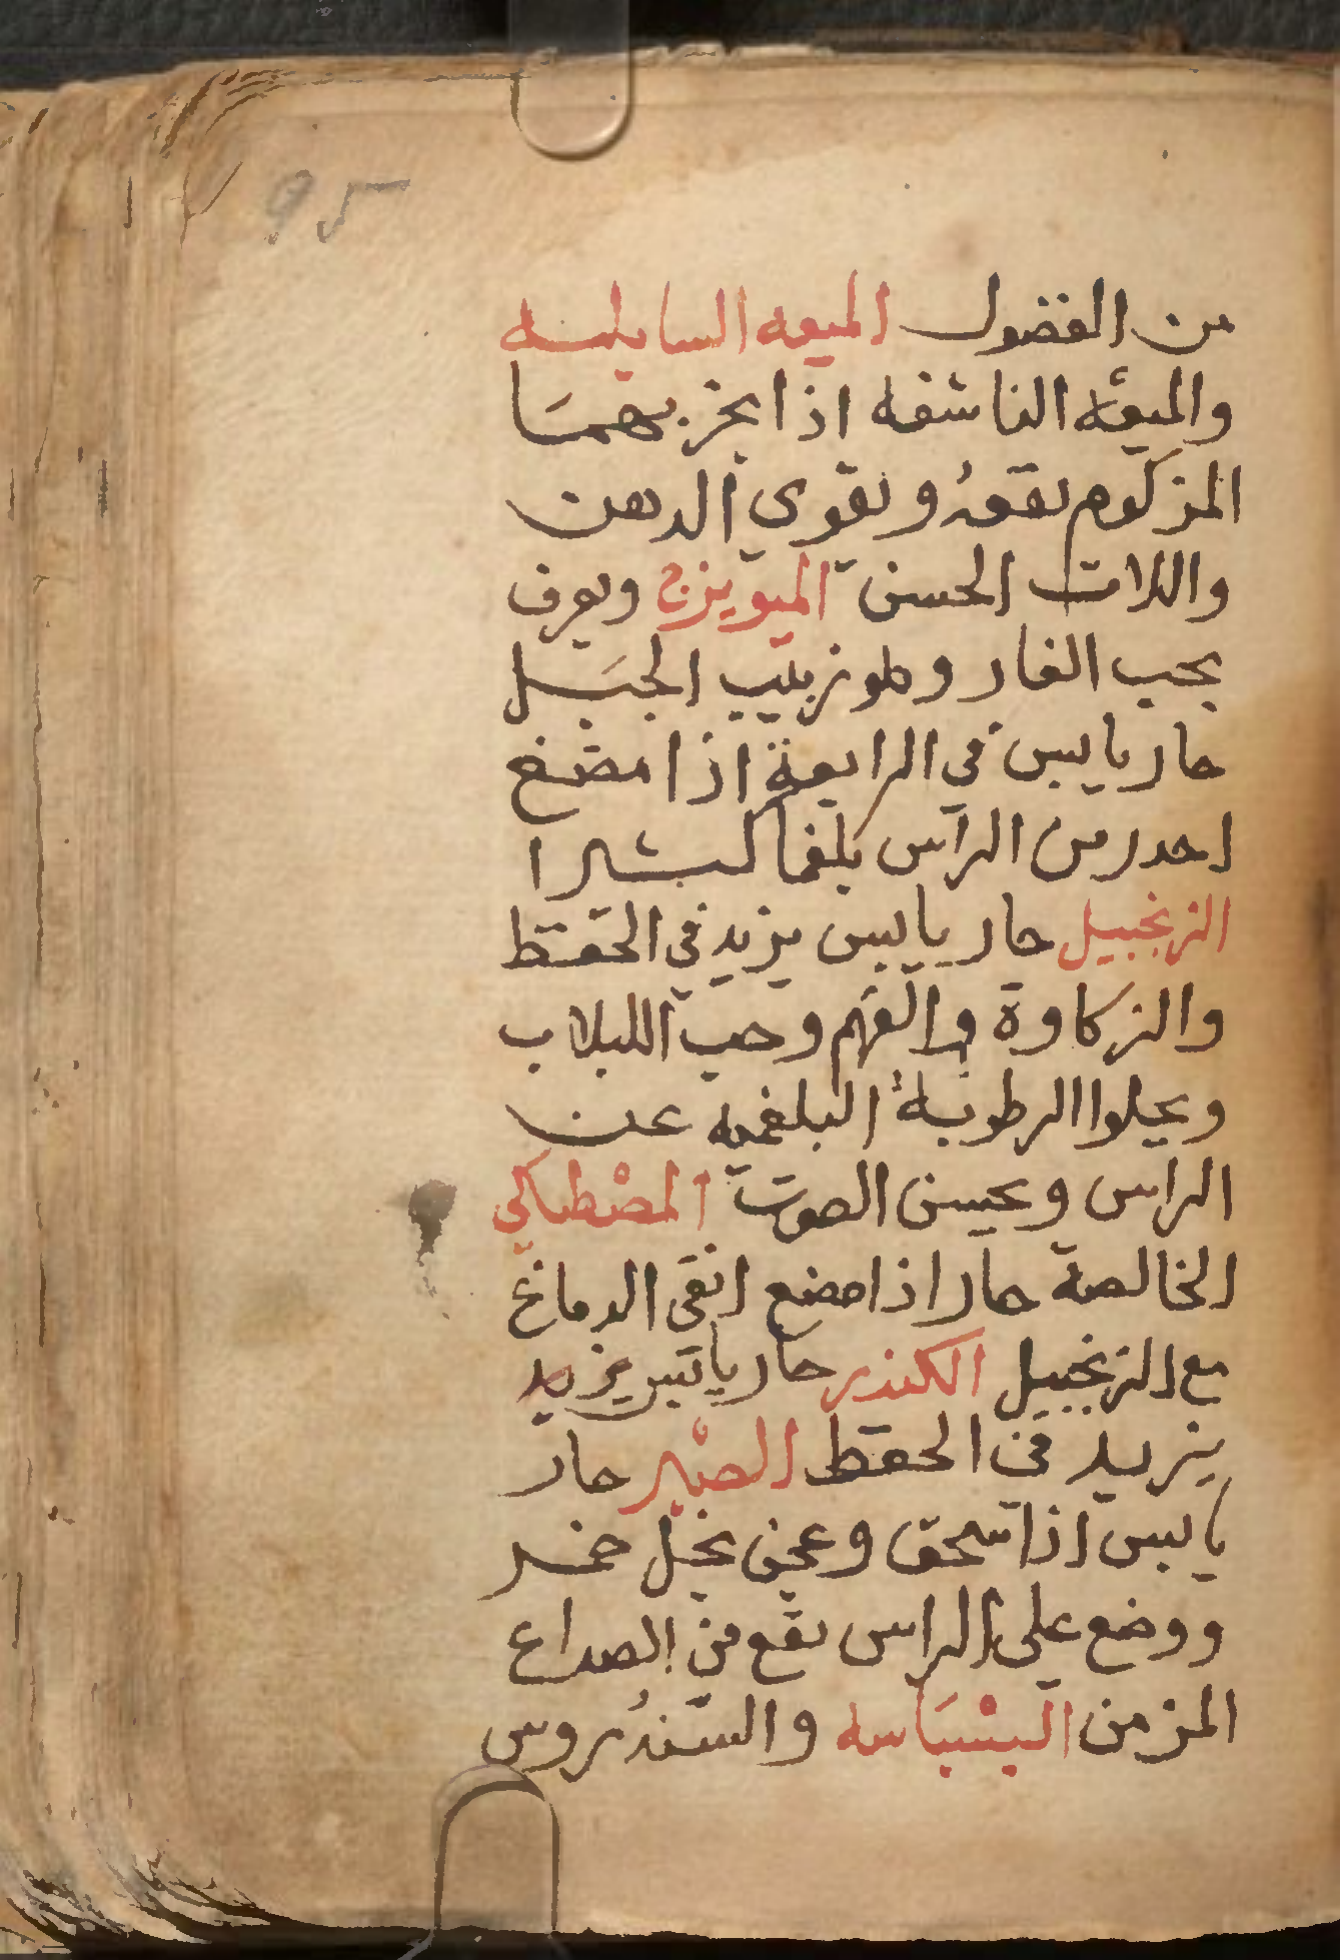 95
من الفضول الميعه السايله
والميعه الناشفه اذا بخر بهما
المزكوم نفعه ونقوي الدهن
واللات الحسن الميويزج ويعرف
بحب الفار وهو زبيب الجبل
حار يابس في الرابعة اذا مضغ
احدر من الراس بلغما كثيرا
الزنجبيل حار يابس يزيد في الحفظ
والزكاوة والفهم وحب اللبلاب
ويجلوا الرطوبة البلغميه عن
الراس ويحسن الصوت المصطكي
الخالصة حار اذا مضغ انقى الدماغ
مع الزنجبيل الكندر حار يابس يزيد
يزيد في الحفظ الصبر حار
يابس اذا سحق وعجن بخل خمر
ووضع على الراس نفع من الصداع
المزمن البسباسه والسندروس